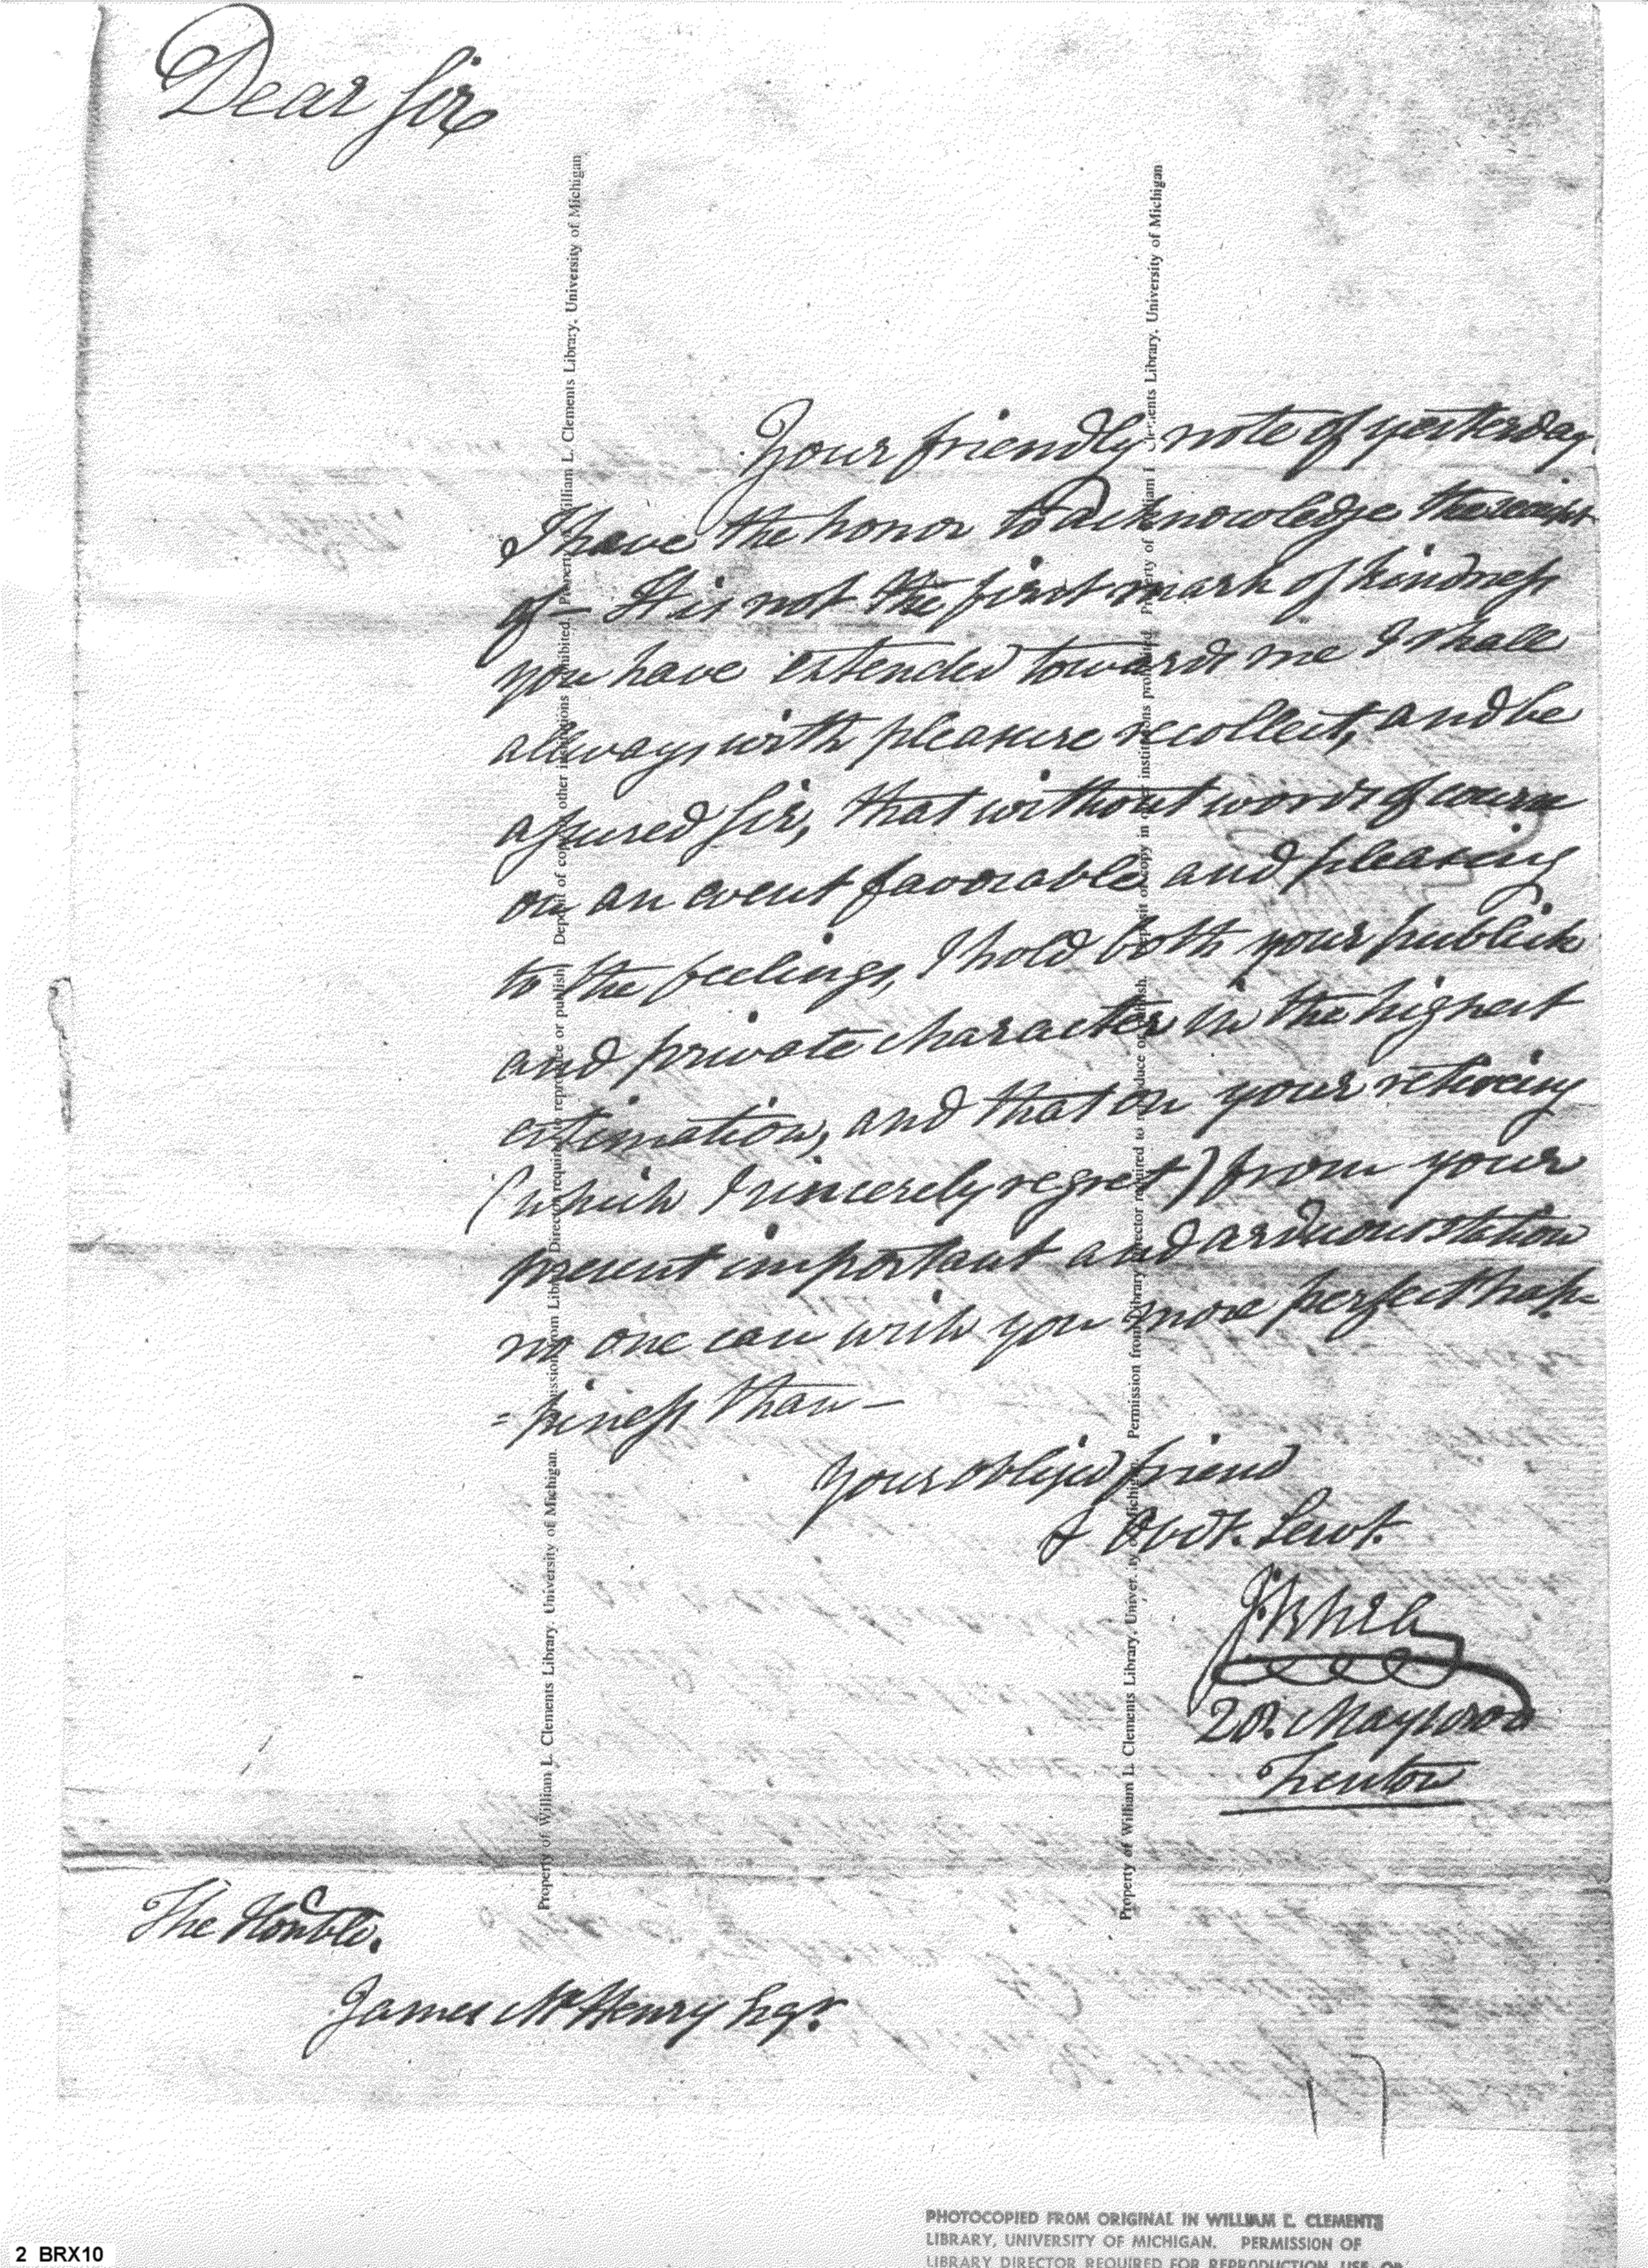 Dear Sir
Your friendly note of yesterday
I have the honor to acknowledge the receipt
of — It is not the first mark of kindness
you have extended towards me I shall
allways with pleasure recollect, and be
assured Sir, that without words of course
on an event favorable and pleasing
to the feelings, I hold both your publick
and private character in the highest
estimation, and that on your retireing
(which I sincerely regret) from your
present important and arduous station
no one can wish you more perfect hap-
=piness than —
Your obliged friend
& Obdt. Servt.
20. May 1800
Trenton
The Honble.
James McHenry Esqr.
17
Property of William L. Clements Library, University of Michigan. Permission from Library Director required to reproduce or publish. Deposit of copy in other institutions prohibited. Property of William L. Clements Library, University of Michigan
Property of William L. Clements Library, University of Michigan. Permission from Library Director required to reproduce or publish. Deposit of copy in other institutions prohibited. Property of William L. Clements Library, University of Michigan
PHOTOCOPIED FROM ORIGINAL IN WILLIAM L. CLEMENTS
LIBRARY, UNIVERSITY OF MICHIGAN. PERMISSION OF
LIBRARY DIRECTOR REQUIRED FOR REPRODUCTION, USE, OR
2 BRX10